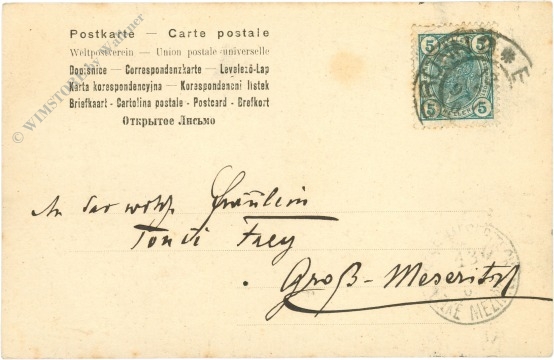 Postkarte — Carte postale
Weltpostverein — Union postale universelle
Dopisnice — Correspondenzkarte — Levelező-Lap
Karta korespondencyjna — Korespondencni listek
Briefkaart - Cartolina postale - Postcard - Brefkort
Открытое Письмо
© WIMSTORE by Wallner
5 5
5 5
An das wohlg. Fräulein
Frey
Groß-Meseritsch